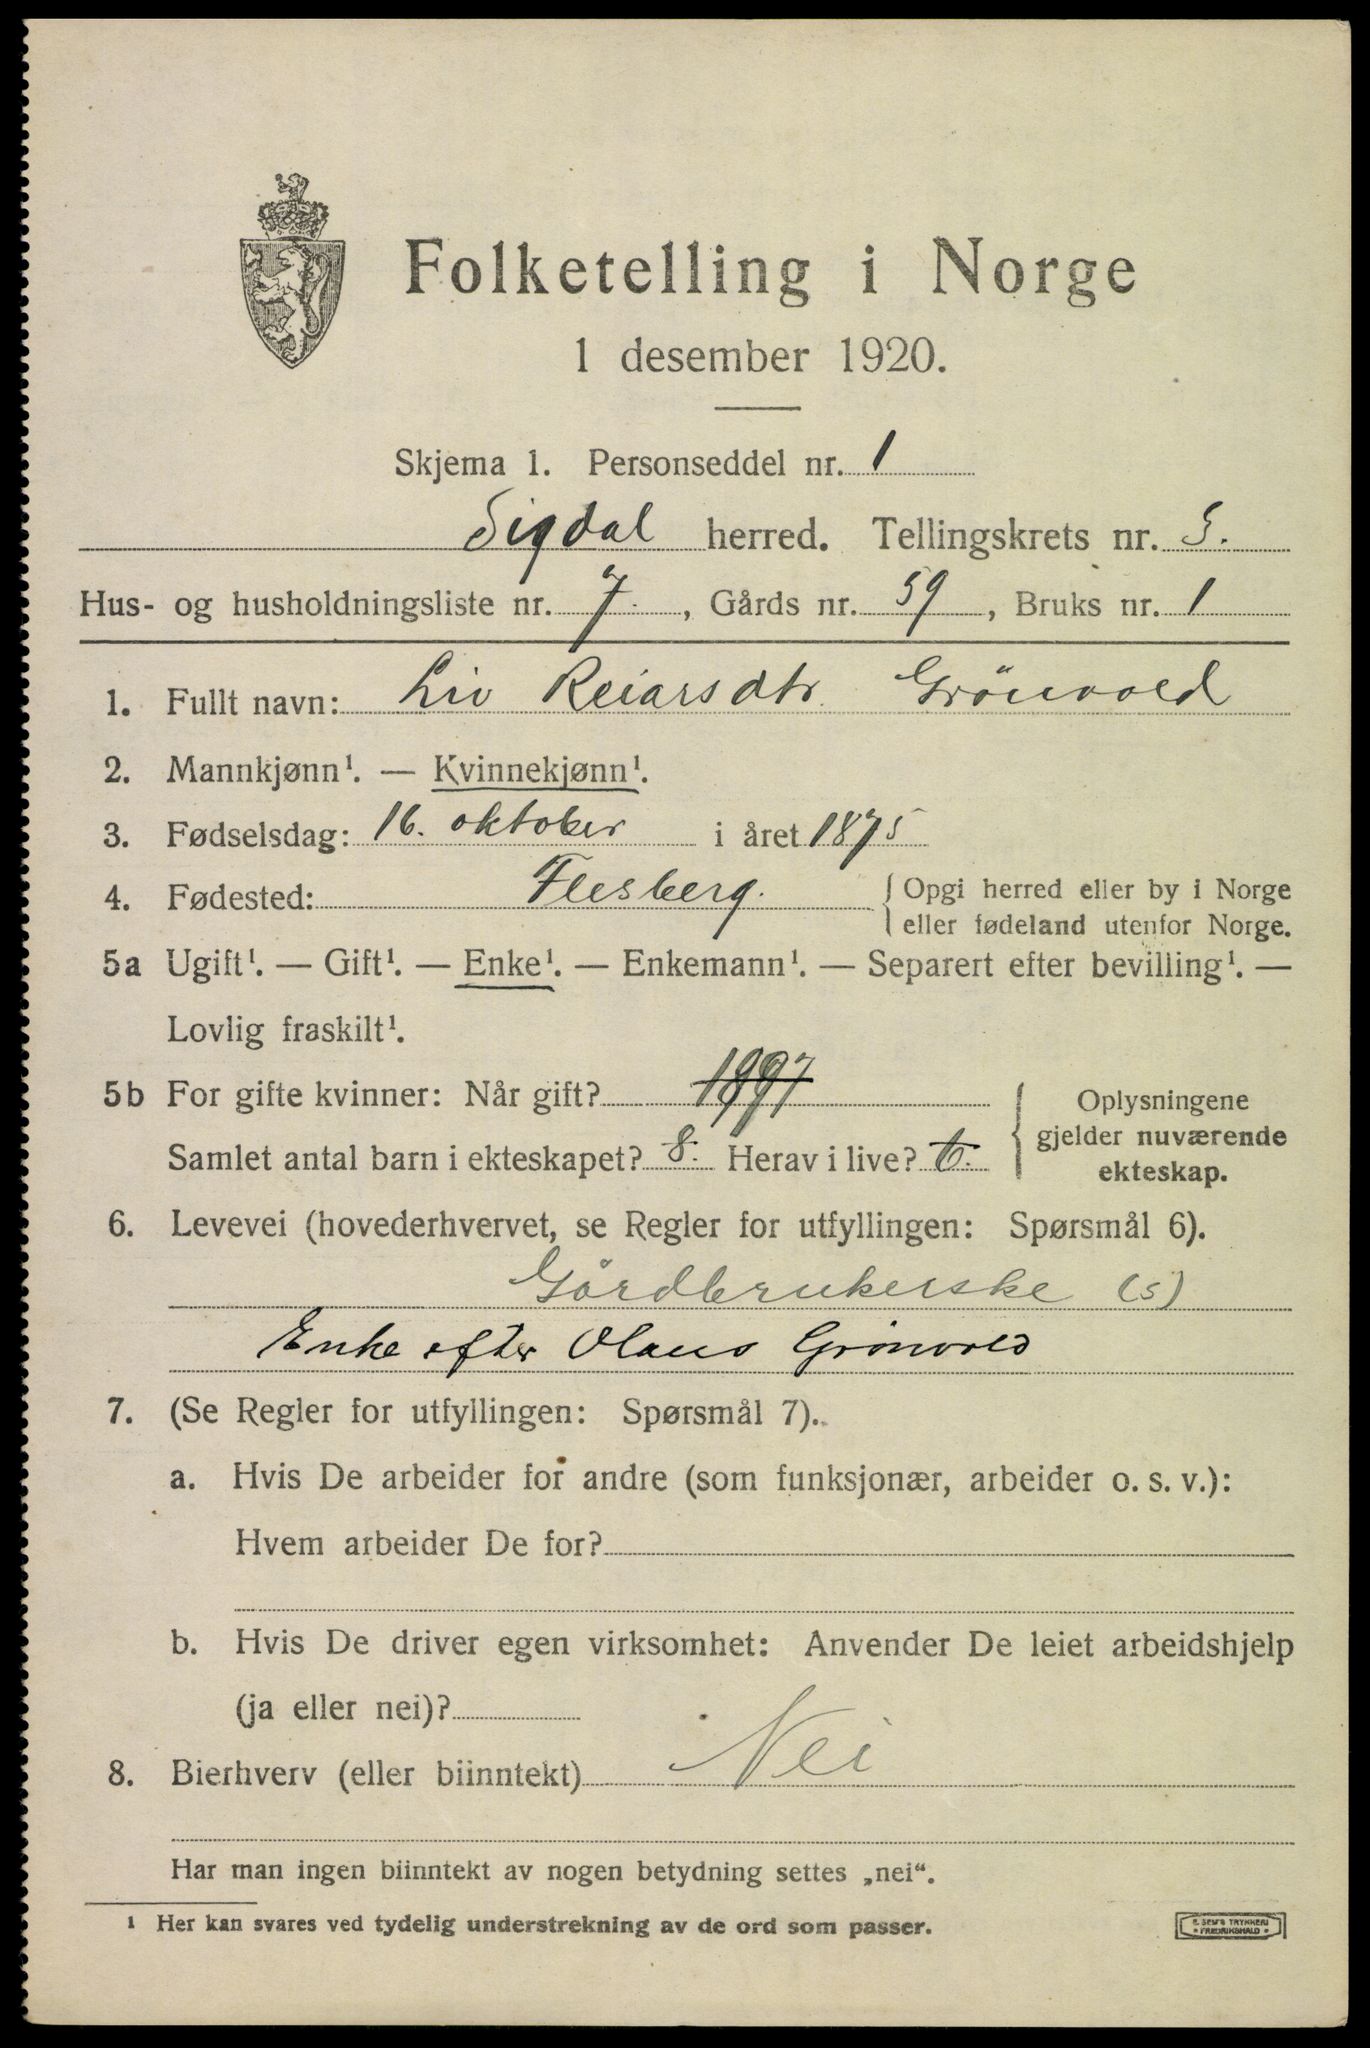 Folketelling i Norge
1 desember 1920.
Skjema 1. Personseddel nr. 1
Sigdal herred. Tellingskrets nr. 5.
Hus- og husholdningsliste nr. 7. , Gårds nr. 59 , Bruks nr. 1
1. Fullt navn: Liv Reiarsdtr. Grönvold
2. Mannkjønn¹. — Kvinnekjønn¹.
3. Fødselsdag: 16. oktober i året 1875
4. Fødested: Flesberg. { Opgi herred eller by i Norge
eller fødeland utenfor Norge.
5a Ugift¹. — Gift¹. — Enke¹. — Enkemann¹. — Separert efter bevilling¹. —
Lovlig fraskilt¹.
5b For gifte kvinner: Når gift? 1897
Samlet antal barn i ekteskapet? 8. Herav i live? 6.
Oplysningene
gjelder nuværende
ekteskap.
6. Levevei (hovederhvervet, se Regler for utfyllingen: Spørsmål 6).
Gårdbrukerske (s)
Enke efter Olaus Grönvold
7. (Se Regler for utfyllingen: Spørsmål 7).
a. Hvis De arbeider for andre (som funksjonær, arbeider o. s. v.):
Hvem arbeider De for?
b. Hvis De driver egen virksomhet: Anvender De leiet arbeidshjelp
(ja eller nei)?
8. Bierhverv (eller biinntekt) Nei
Har man ingen biinntekt av nogen betydning settes „nei“.
¹ Her kan svares ved tydelig understrekning av de ord som passer.
E. SEM'S TRYKKERI
FREDRIKSHALD